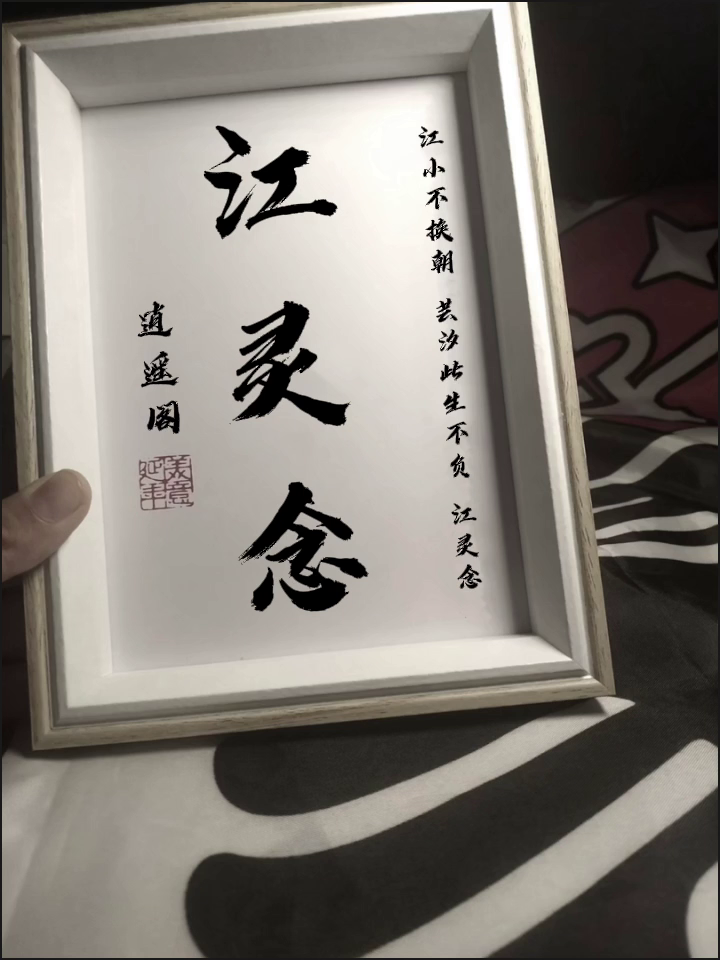 江小不换朝 芸汐此生不负 江灵念
江灵念
逍遥阁
美意延年